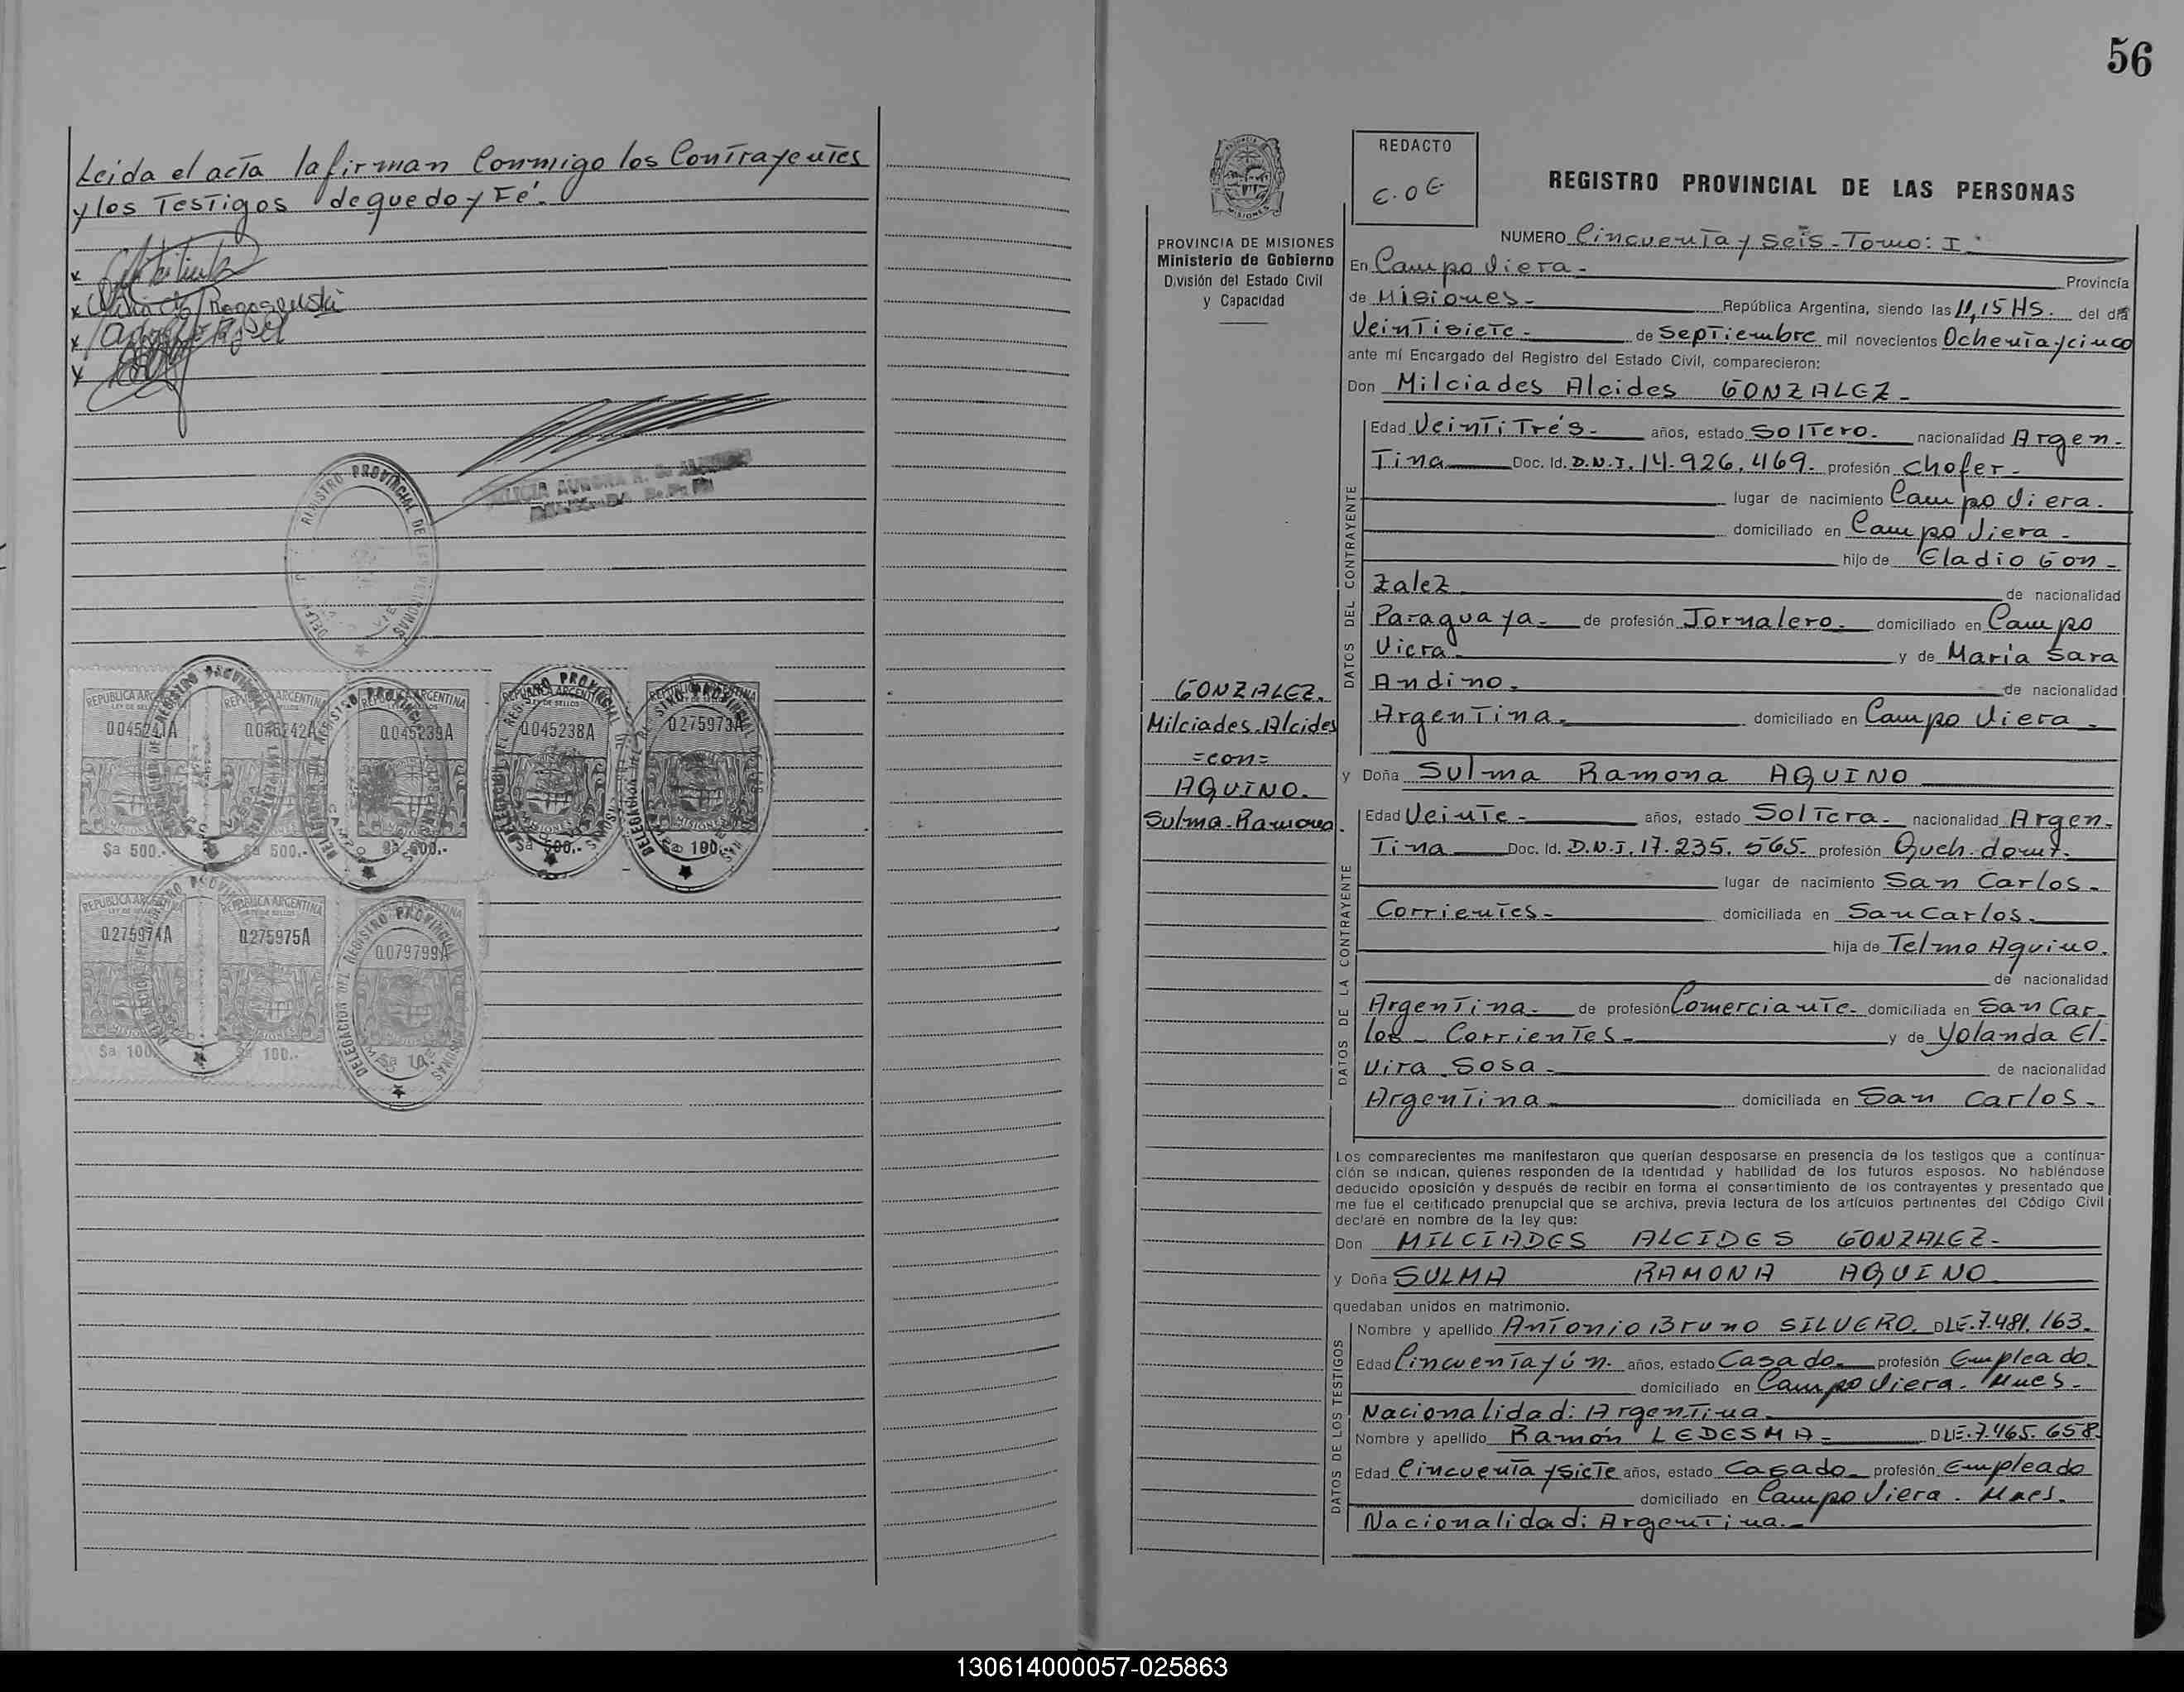 Leida el acta la firman Conmigo los Contrayentes
y los Testigos de que doy Fé.
REGISTRO PROVINCIAL DE LAS PERSONAS
REPUBLICA ARGENTINA
LEY DE SELLOS
0.045241A
0.045242A
0.045239A
0.045238A
0.275973A
MISIONES
$a 500.-
$a 500.-
$a 500.-
$a 500.-
$a 100.-
0.275974A
0.275975A
0.079799A
$a 100.-
$a 100.-
$a 10.-
56
REDACTO
REGISTRO PROVINCIAL DE LAS PERSONAS
MISIONES
PROVINCIA DE MISIONES
Ministerio de Gobierno
División del Estado Civil
y Capacidad
GONZALEZ.
Milciades Alcides
=con=
AQUINO.
Sulma-Ramona.
NUMERO Cincuenta y Seis - Tomo: I -
En Campo Viera - Provincia
de Misiones - República Argentina, siendo las 11,15 HS. del día
Veintisiete - de Septiembre mil novecientos Ochenta y cinco
ante mí Encargado del Registro del Estado Civil, comparecieron:
Don Milciades Alcides GONZALEZ -
DATOS DEL CONTRAYENTE
Edad Veinti Trés - años, estado Soltero - nacionalidad Argen-
Tina Doc. Id. D.N.I. 14.926.469 - profesión Chofer -
lugar de nacimiento Campo Viera.
domiciliado en Campo Viera -
hijo de Eladio Gon-
zalez de nacionalidad
Paraguaya - de profesión Jornalero - domiciliado en Campo
Viera - y de María Sara
Andino - de nacionalidad
Argentina - domiciliado en Campo Viera -
y Doña Sulma Ramona AQUINO
DATOS DE LA CONTRAYENTE
Edad Veinte - años, estado Soltera - nacionalidad Argen-
Tina Doc. Id. D.N.I. 17.235.565 - profesión Queh. domt.
lugar de nacimiento San Carlos -
Corrientes - domiciliada en San Carlos -
hija de Telmo Aquino.
de nacionalidad
Argentina - de profesión Comerciante - domiciliada en San Car-
los - Corrientes - y de Yolanda El-
vira Sosa - de nacionalidad
Argentina - domiciliada en San Carlos -
Los comparecientes me manifestaron que querían desposarse en presencia de los testigos que a continua-
ción se indican, quienes responden de la identidad y habilidad de los futuros esposos. No habiéndose
deducido oposición y después de recibir en forma el consentimiento de los contrayentes y presentado que
me fue el certificado prenupcial que se archiva, previa lectura de los artículos pertinentes del Código Civil
declaré en nombre de la ley que:
Don MILCIADES ALCIDES GONZALEZ -
y Doña SULMA RAMONA AQUINO
quedaban unidos en matrimonio.
DATOS DE LOS TESTIGOS
Nombre y apellido Antonio Bruno SILVERO. DLE. 7.481.163 -
Edad Cincuenta y ún - años, estado Casado - profesión Empleado
domiciliado en Campo Viera. Mnes -
Nacionalidad: Argentina -
Nombre y apellido Ramón LEDESMA - DLE. 7.465.658
Edad Cincuenta y siete años, estado Casado - profesión Empleado
domiciliado en Campo Viera. Mnes.
Nacionalidad: Argentina. -
130614000057-025863